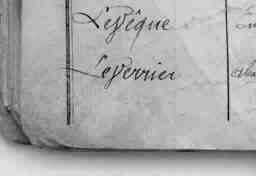 LeVêque
LeVerrier